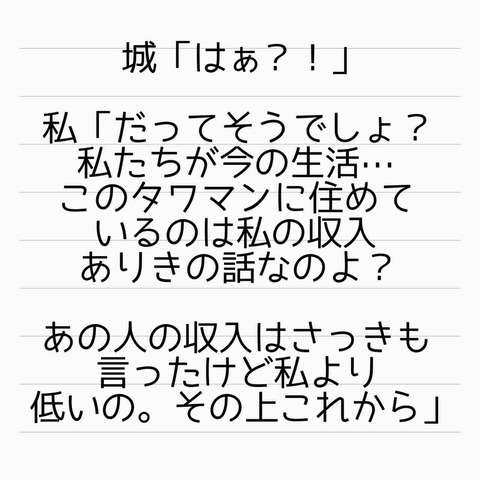 城「はぁ？！」
私「だってそうでしょ？
私たちが今の生活…
このタワマンに住めて
いるのは私の収入
ありきの話なのよ？
あの人の収入はさっきも
言ったけど私より
低いの。その上これから」